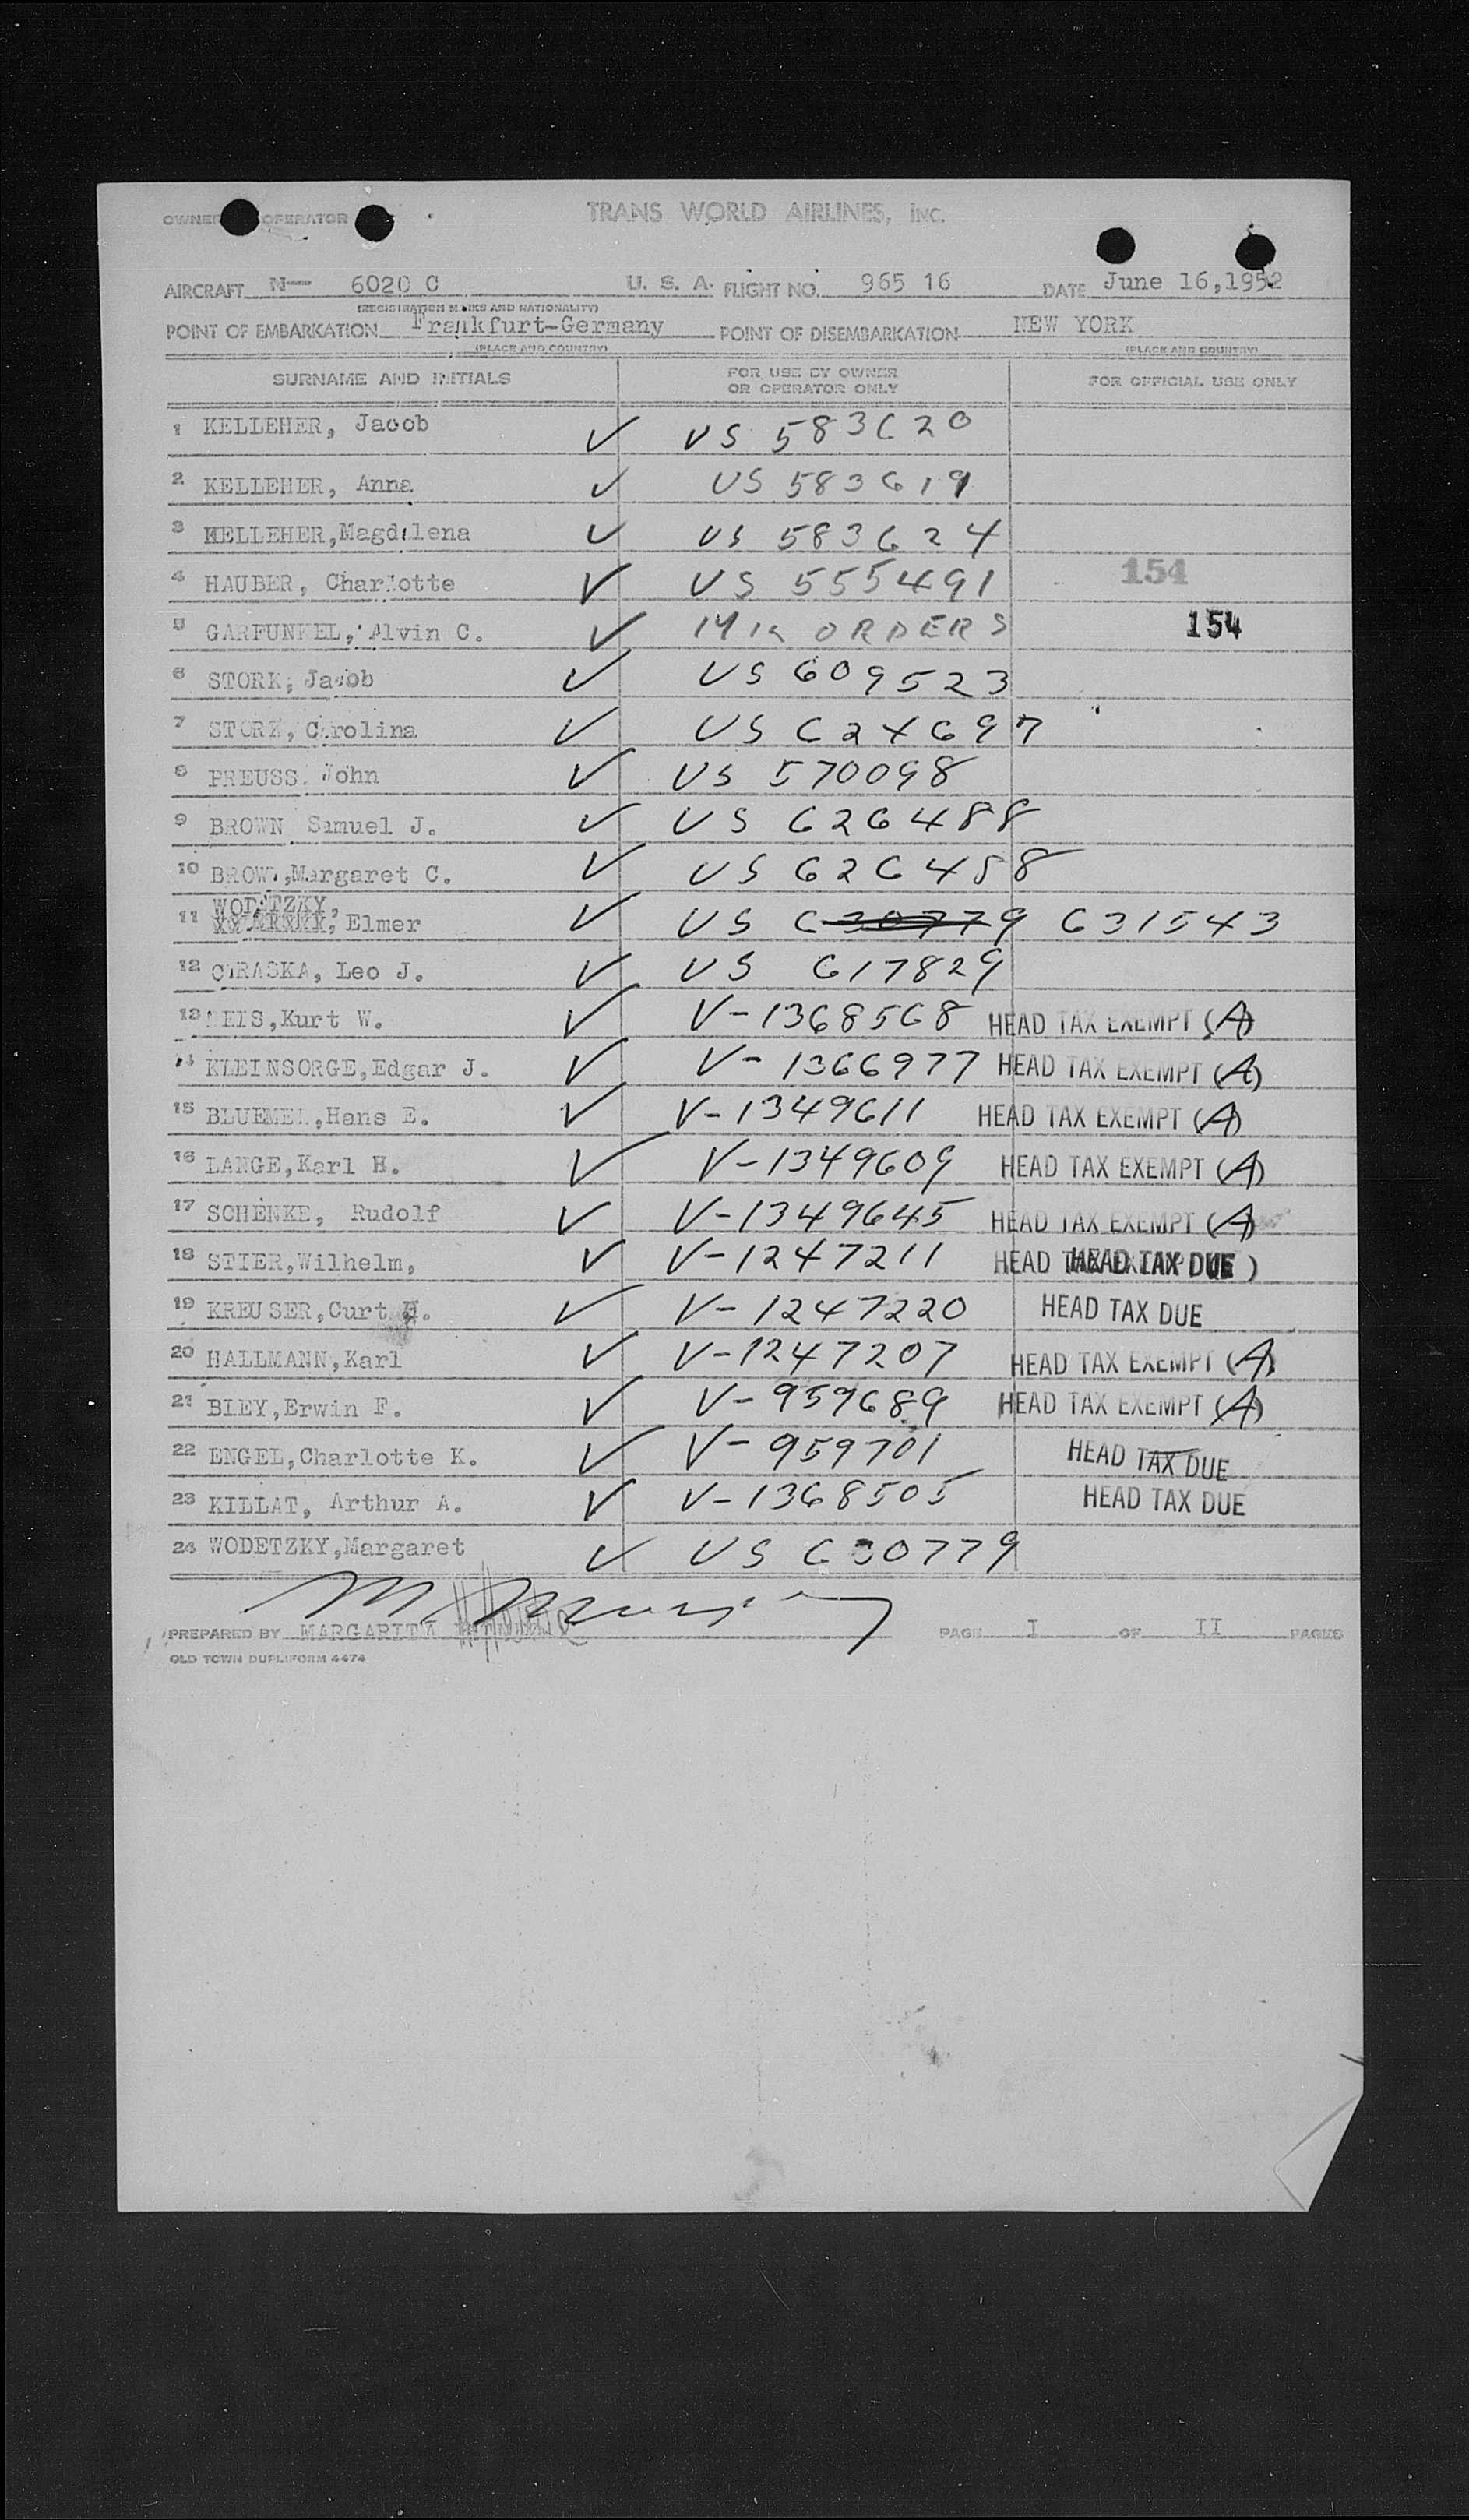 OWNER OPERATOR TRANS WORLD AIRLINES, INC.
AIRCRAFT N— 6020 C U. S. A. FLIGHT NO. 965 16 DATE June 16,1952
(REGISTRATION MARKS AND NATIONALITY)
POINT OF EMBARKATION Frankfurt-Germany POINT OF DISEMBARKATION NEW YORK
(PLACE AND COUNTRY) (PLACE AND COUNTRY)
SURNAME AND INITIALS FOR USE BY OWNER OR OPERATOR ONLY FOR OFFICIAL USE ONLY
1 KELLEHER, Jacob ✓ US 583620
2 KELLEHER, Anna ✓ US 583619
3 KELLEHER,Magdalena ✓ US 583624
4 HAUBER, Charlotte ✓ US 555491 154
5 GARFUNKEL, Alvin C. ✓ ORDERS 154
6 STORK, Jacob ✓ US 609523
7 STORK, Carolina ✓ US 624697
8 PREUSS, John ✓ US 570098
9 BROWN Samuel J. ✓ US 626488
10 BROWN,Margaret C. ✓ US 626458
11 WODETZKY, Elmer ✓ US 630779 631543
12 Leo J. ✓ US 617829
13 Kurt W. ✓ V-1368568 HEAD TAX EXEMPT (A)
14 KLEINSORGE,Edgar J. ✓ V-1366977 HEAD TAX EXEMPT (A)
15 BLUEMEL,Hans E. ✓ V-1349611 HEAD TAX EXEMPT (A)
16 LANGE,Karl H. ✓ V-1349609 HEAD TAX EXEMPT (A)
17 SCHENKE, Rudolf ✓ V-1349645 HEAD TAX EXEMPT (A)
18 STIER,Wilhelm, ✓ V-1247211 HEAD TAX DUE
19 KREUSER,Curt H. ✓ V-1247220 HEAD TAX DUE
20 HALLMANN,Karl ✓ V-1247207 HEAD TAX EXEMPT (A)
21 BLEY,Erwin F. ✓ V-959689 HEAD TAX EXEMPT (A)
22 ENGEL,Charlotte K. ✓ V-959701 HEAD TAX DUE
23 KILLAT, Arthur A. ✓ V-1368505 HEAD TAX DUE
24 WODETZKY,Margaret ✓ US 630779
PREPARED BY MARGARITA PAGE I OF II PAGES
OLD TOWN DUPLIFORM 4474